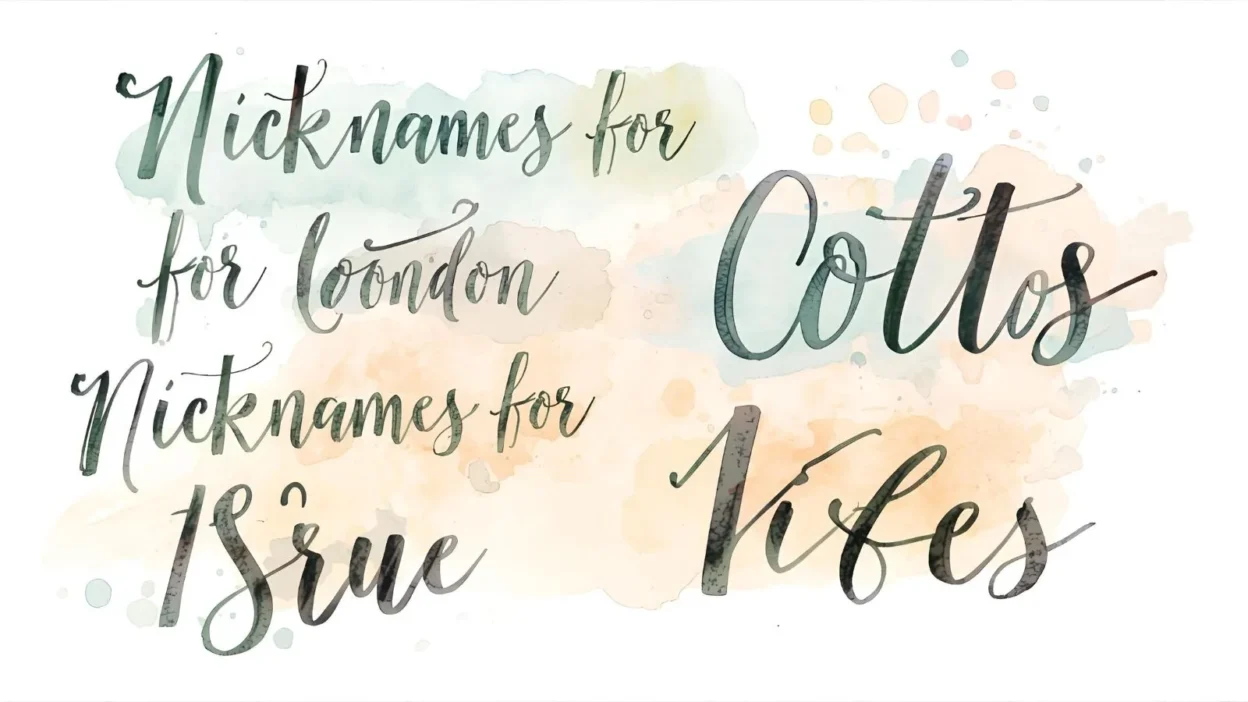 Nicknames for
for loondon
Nicknames for
Cottos
Vifes